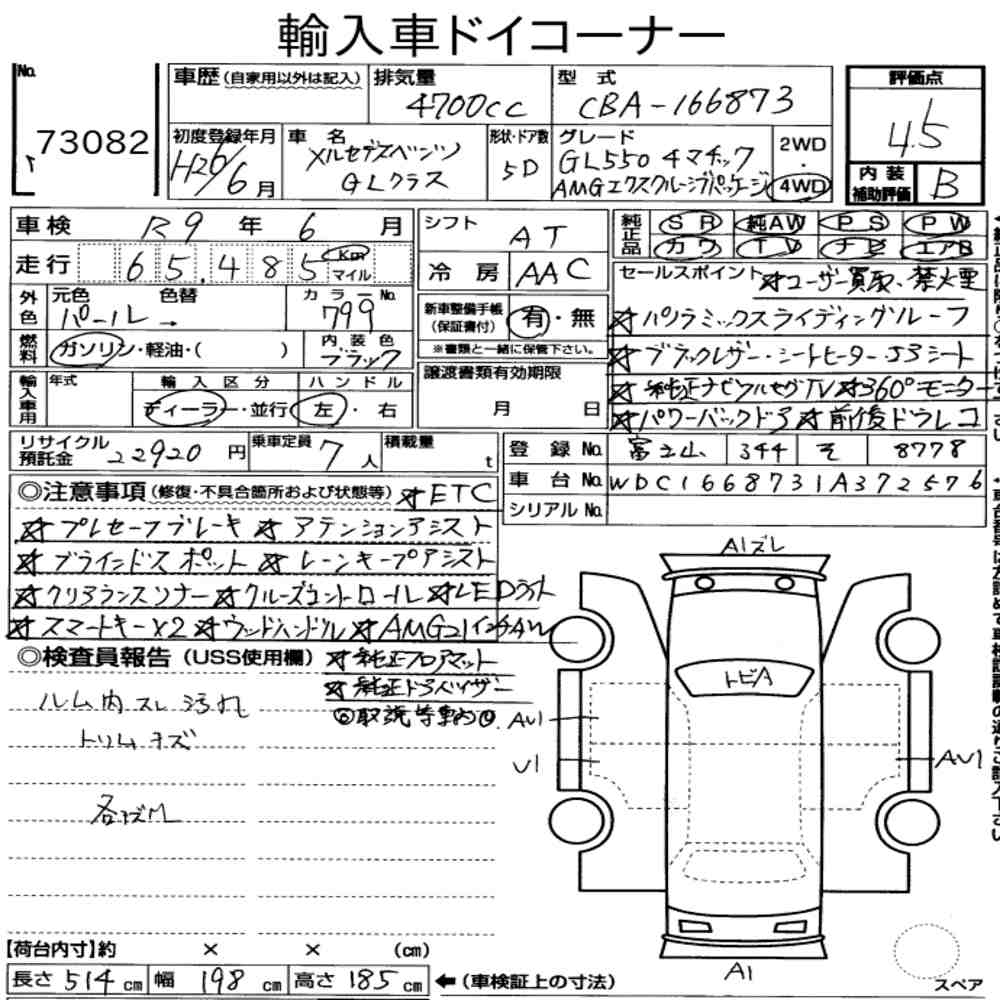 輸入車ドイコーナー
No. 73082
車歴 (自家用以外は記入)
排気量 4700cc
型式 CBA-166873
評価点 4.5
初度登録年月 H26/6月
車名 メルセデスベンツ GLクラス
形状・ドア数 5D
グレード GL550 4マチック AMGエクスクルーシブパッケージ
2WD 4WD
内装補助評価 B
車検 R9年 6月
シフト AT
純正品 SR 純AW PS PW
カワ TV ナビ エアB
走行 65,485 Km マイル
冷房 AAC
セールスポイント ☆ユーザー買取、禁火歴
外色 元色 パール→ 色替 カラーNo. 799
新車整備手帳(保証書付) 有・無
※書類と一緒に保管下さい。
☆パノラミックスライディングルーフ
燃料 ガソリン・軽油・( )
内装色 ブラック
☆ブラックレザー・シートヒーター53シート
輸入車用 年式 輸入区分 ディーラー・並行 ハンドル 左・右
譲渡書類有効期限 月 日
☆純正ナビフルセグTV☆360°モニター
☆パワーバックドア☆前後ドラレコ
リサイクル預託金 22920円
乗車定員 7人
積載量 t
登録No. 富士山 344 そ 8778
車台No. WDC1668731A372576
シリアルNo.
◎注意事項 (修復・不具合箇所および状態等) ☆ETC
☆プレセーフブレーキ☆アテンションアシスト
☆ブラインドスポット☆レーンキープアシスト
☆クリアランスソナー☆クルーズコントロール☆LEDライト
☆スマートキー×2☆ウッドハンドル☆AMG21インチAW
◎検査員報告 (USS使用欄) ☆純正フロアマット
☆純正ドアバイザー
◎取説等車内◎
ルーム内スレ汚れ
トリムキズ
各キズM
A1ズレ
トビA
AU1
U1
AU1
A1
スペア
【荷台内寸】約 × × (cm)
長さ 514 cm 幅 198 高さ 185 cm ←(車検証上の寸法)